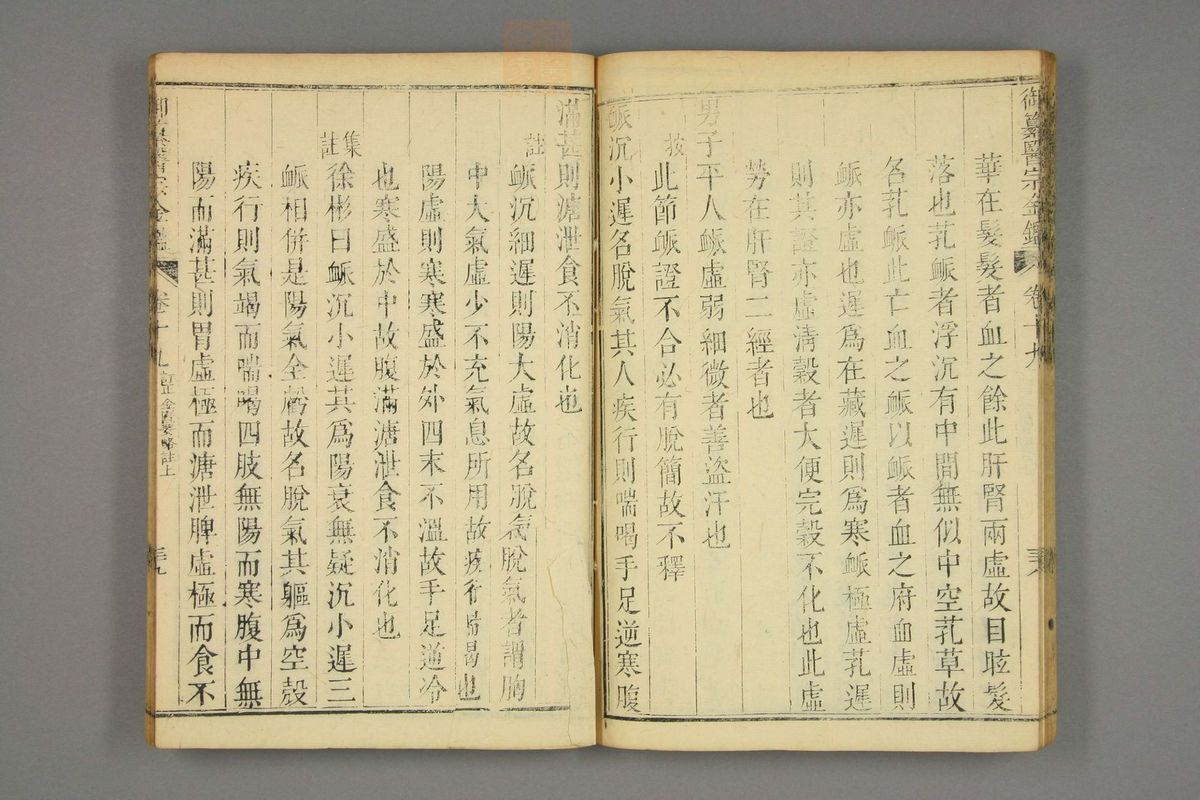 御纂醫宗金鑑 卷十九 三十八
華在髮髮者血之餘此肝腎兩虛故目眩髮
落也芤脈者浮沉有中間無似中空芤草故
名芤脈此亡血之脈以脈者血之府血虛則
脈亦虛也遲為在藏遲則為寒脈極虛芤遲
則其證亦虛淸穀者大便完穀不化也此虛
勞在肝腎二經者也
男子平人脈虛弱細微者善盜汗也
按此節脈證不合必有脫簡故不釋
脈沉小遲名脫氣其人疾行則喘喝手足逆寒腹
滿甚則溏泄食不消化也
註脈沉細遲則陽大虛故名脫氣脫氣者謂胸
中大氣虛少不充氣息所用故疾行喘喝也
陽虛則寒寒盛於外四末不溫故手足逆冷
也寒盛於中故腹滿溏泄食不消化也
集註徐彬曰脈沉小遲其為陽衰無疑沉小遲三
脈相併是陽氣全虧故名脫氣其軀為空殼
疾行則氣竭而喘喝四肢無陽而寒腹中無
陽而滿甚則胃虛極而溏泄脾虛極而食不
御纂醫宗金鑑 卷十九 訂正金匱要略註上 三十九